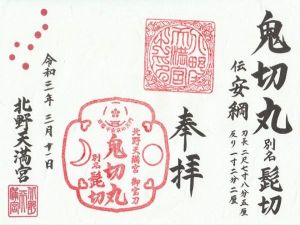 鬼切丸 別名 髭切
伝 安綱
刀長 二尺七寸八分五厘
反り 一寸二分二厘
奉拝
北野天満宮 御宝刀
鬼切丸
別名
髭切
令和三年三月廿一日
北野天満宮